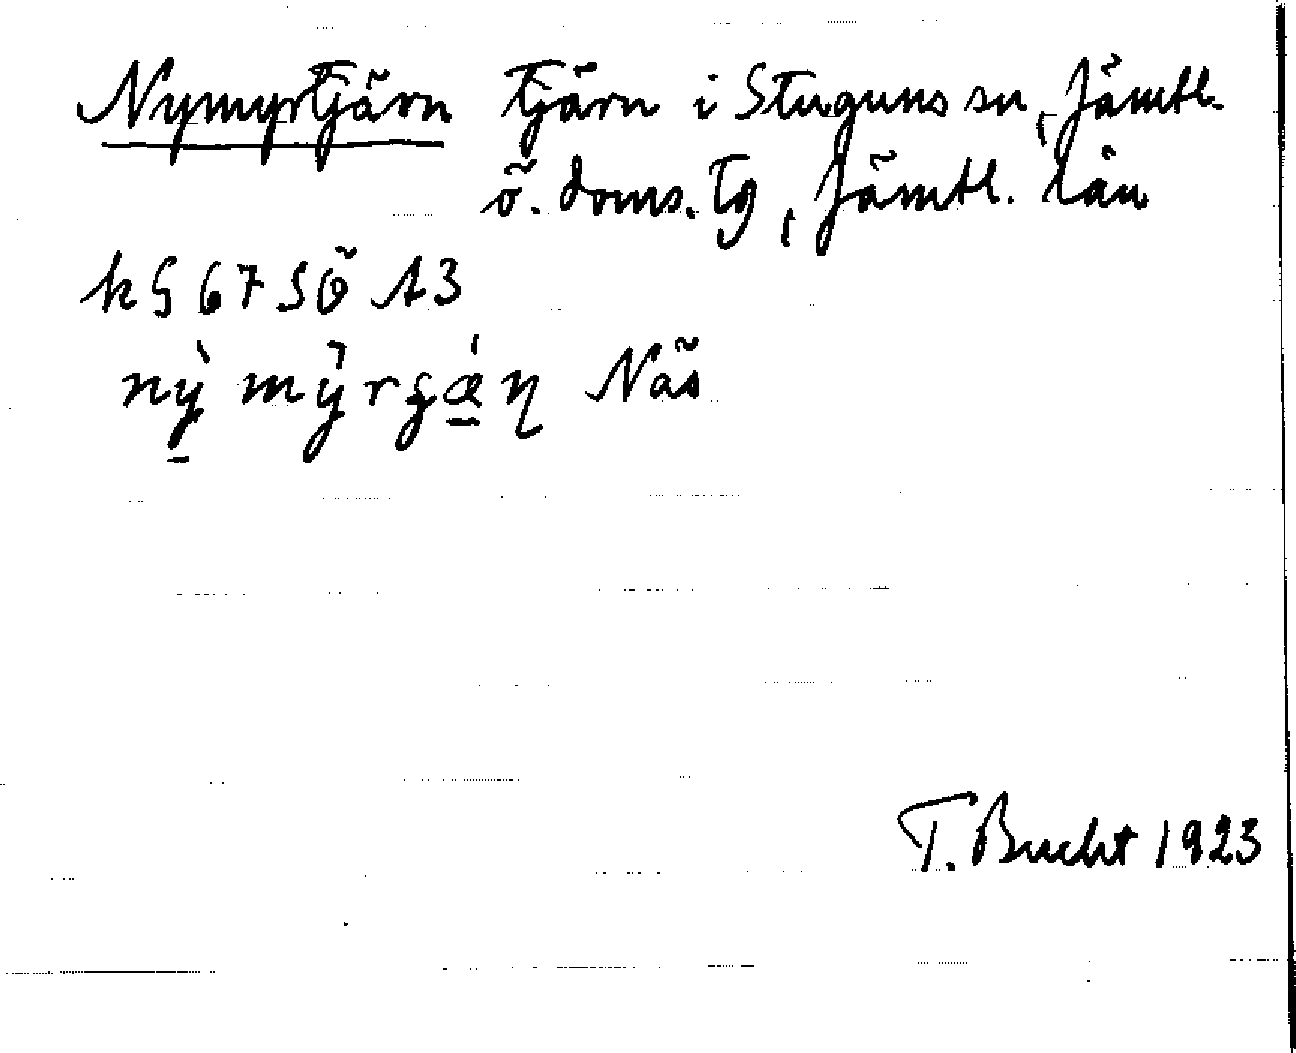 Nymyrtjärn Tjärn i Stuguns sn, Jämtl.
ö. doms. Tg, Jämtl. län
k§ 67 SÖ A3
nỳ mýrʂǽṇ Näs
T. Bucht 1923